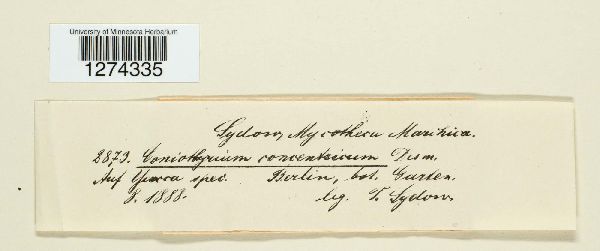 University of Minnesota Herbarium
1274335
Sydow, Mycotheca Marchica.
2873. Coniothyrium concentricum Desm.
Auf Yucca spec. Berlin, bot. Garten.
8. 1888. leg. P. Sydow.